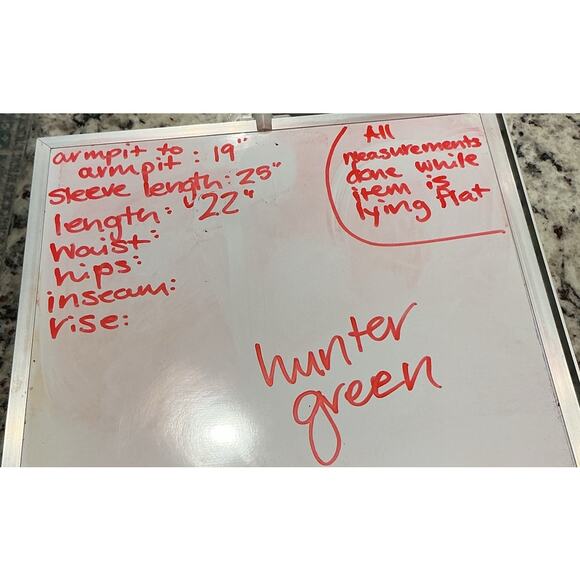 armpit to
armpit: 19"
sleeve length: 25"
length: 22"
waist:
hips:
inseam:
rise:
All
measurements
done while
item is
lying flat
hunter
green